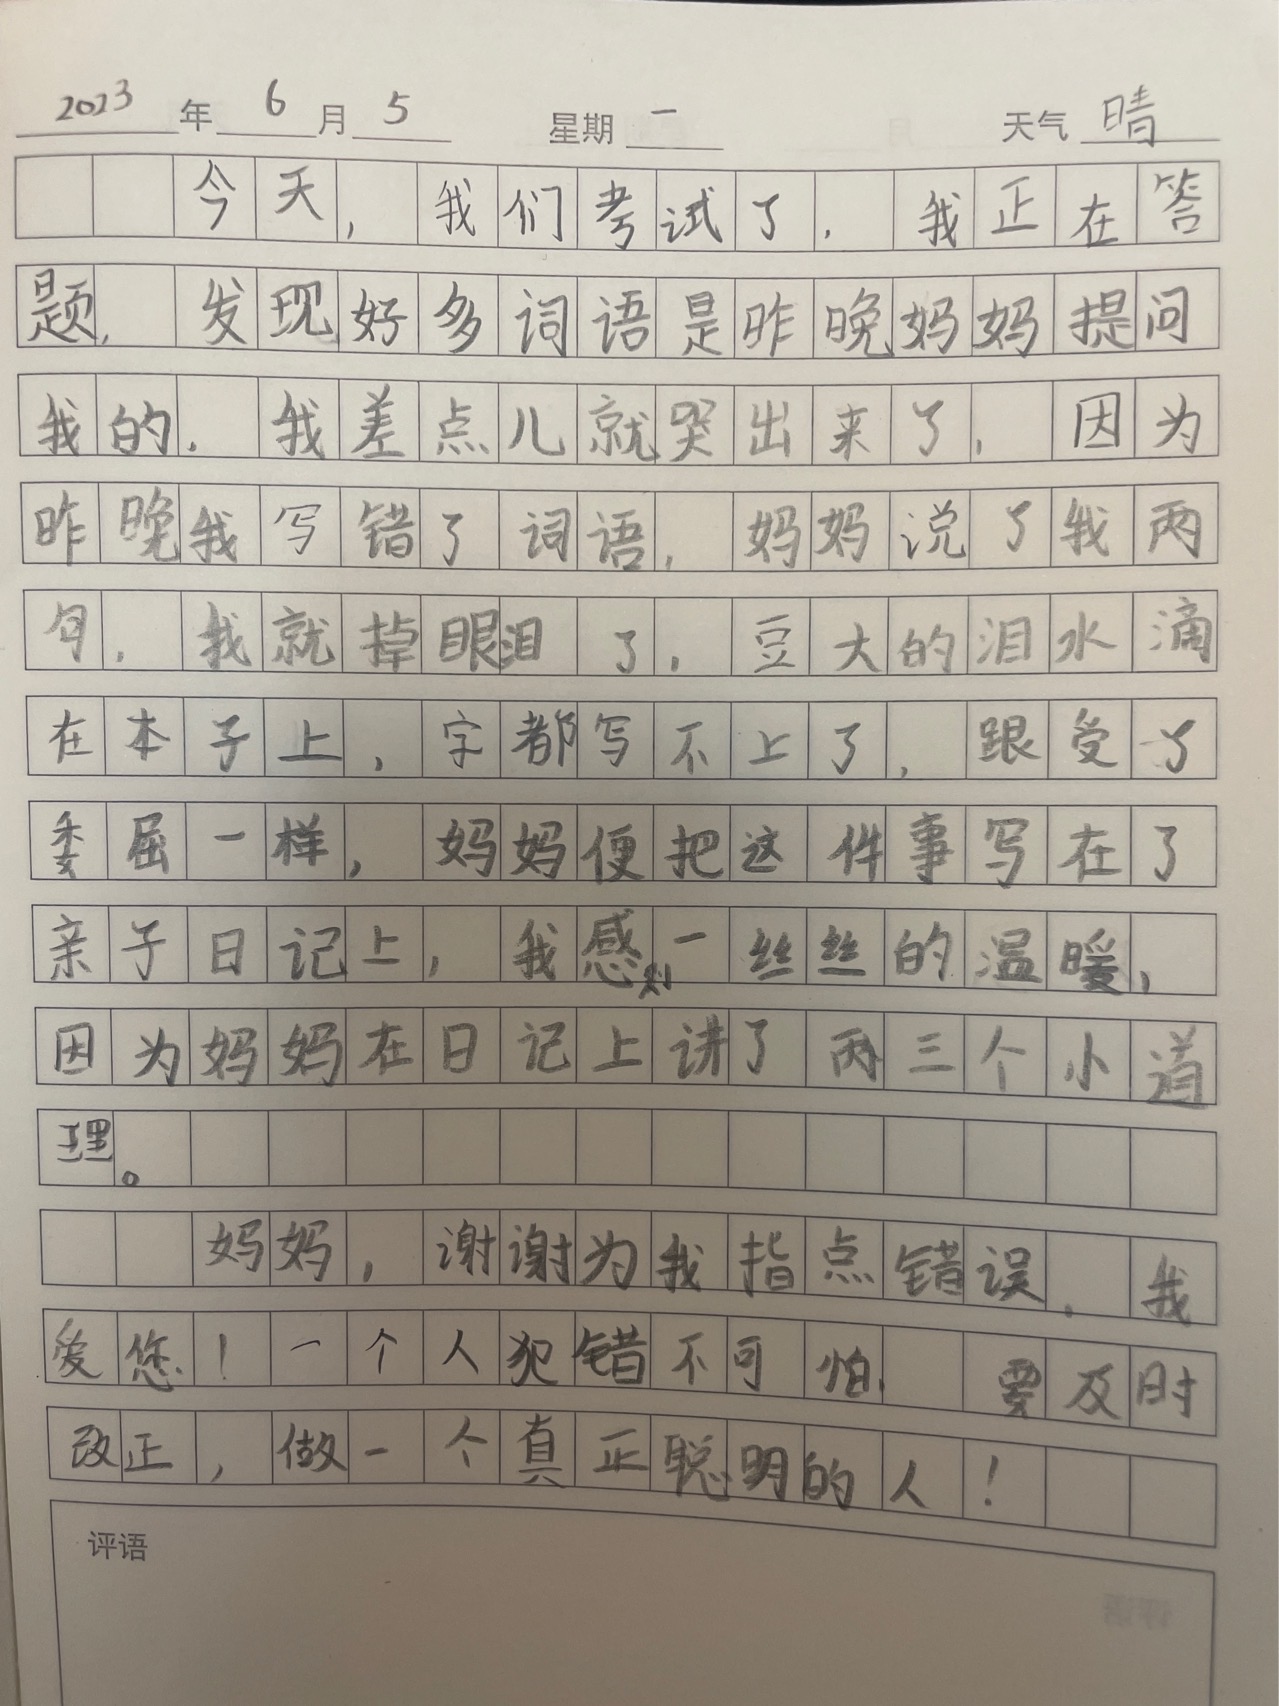 2023年6月5 星期一 天气晴
今天，我们考试了，我正在答
题，发现好多词语是昨晚妈妈提问
我的，我差点儿就哭出来了，因为
昨晚我写错了词语，妈妈说了我两
句，我就掉眼泪了，豆大的泪水滴
在本子上，字都写不上了，跟受了
委屈一样，妈妈便把这件事写在了
亲子日记上，我感到一丝丝的温暖，
因为妈妈在日记上讲了两三个小道
理。
妈妈，谢谢为我指点错误，我
爱您！一个人犯错不可怕，要及时
改正，做一个真正聪明的人！
评语